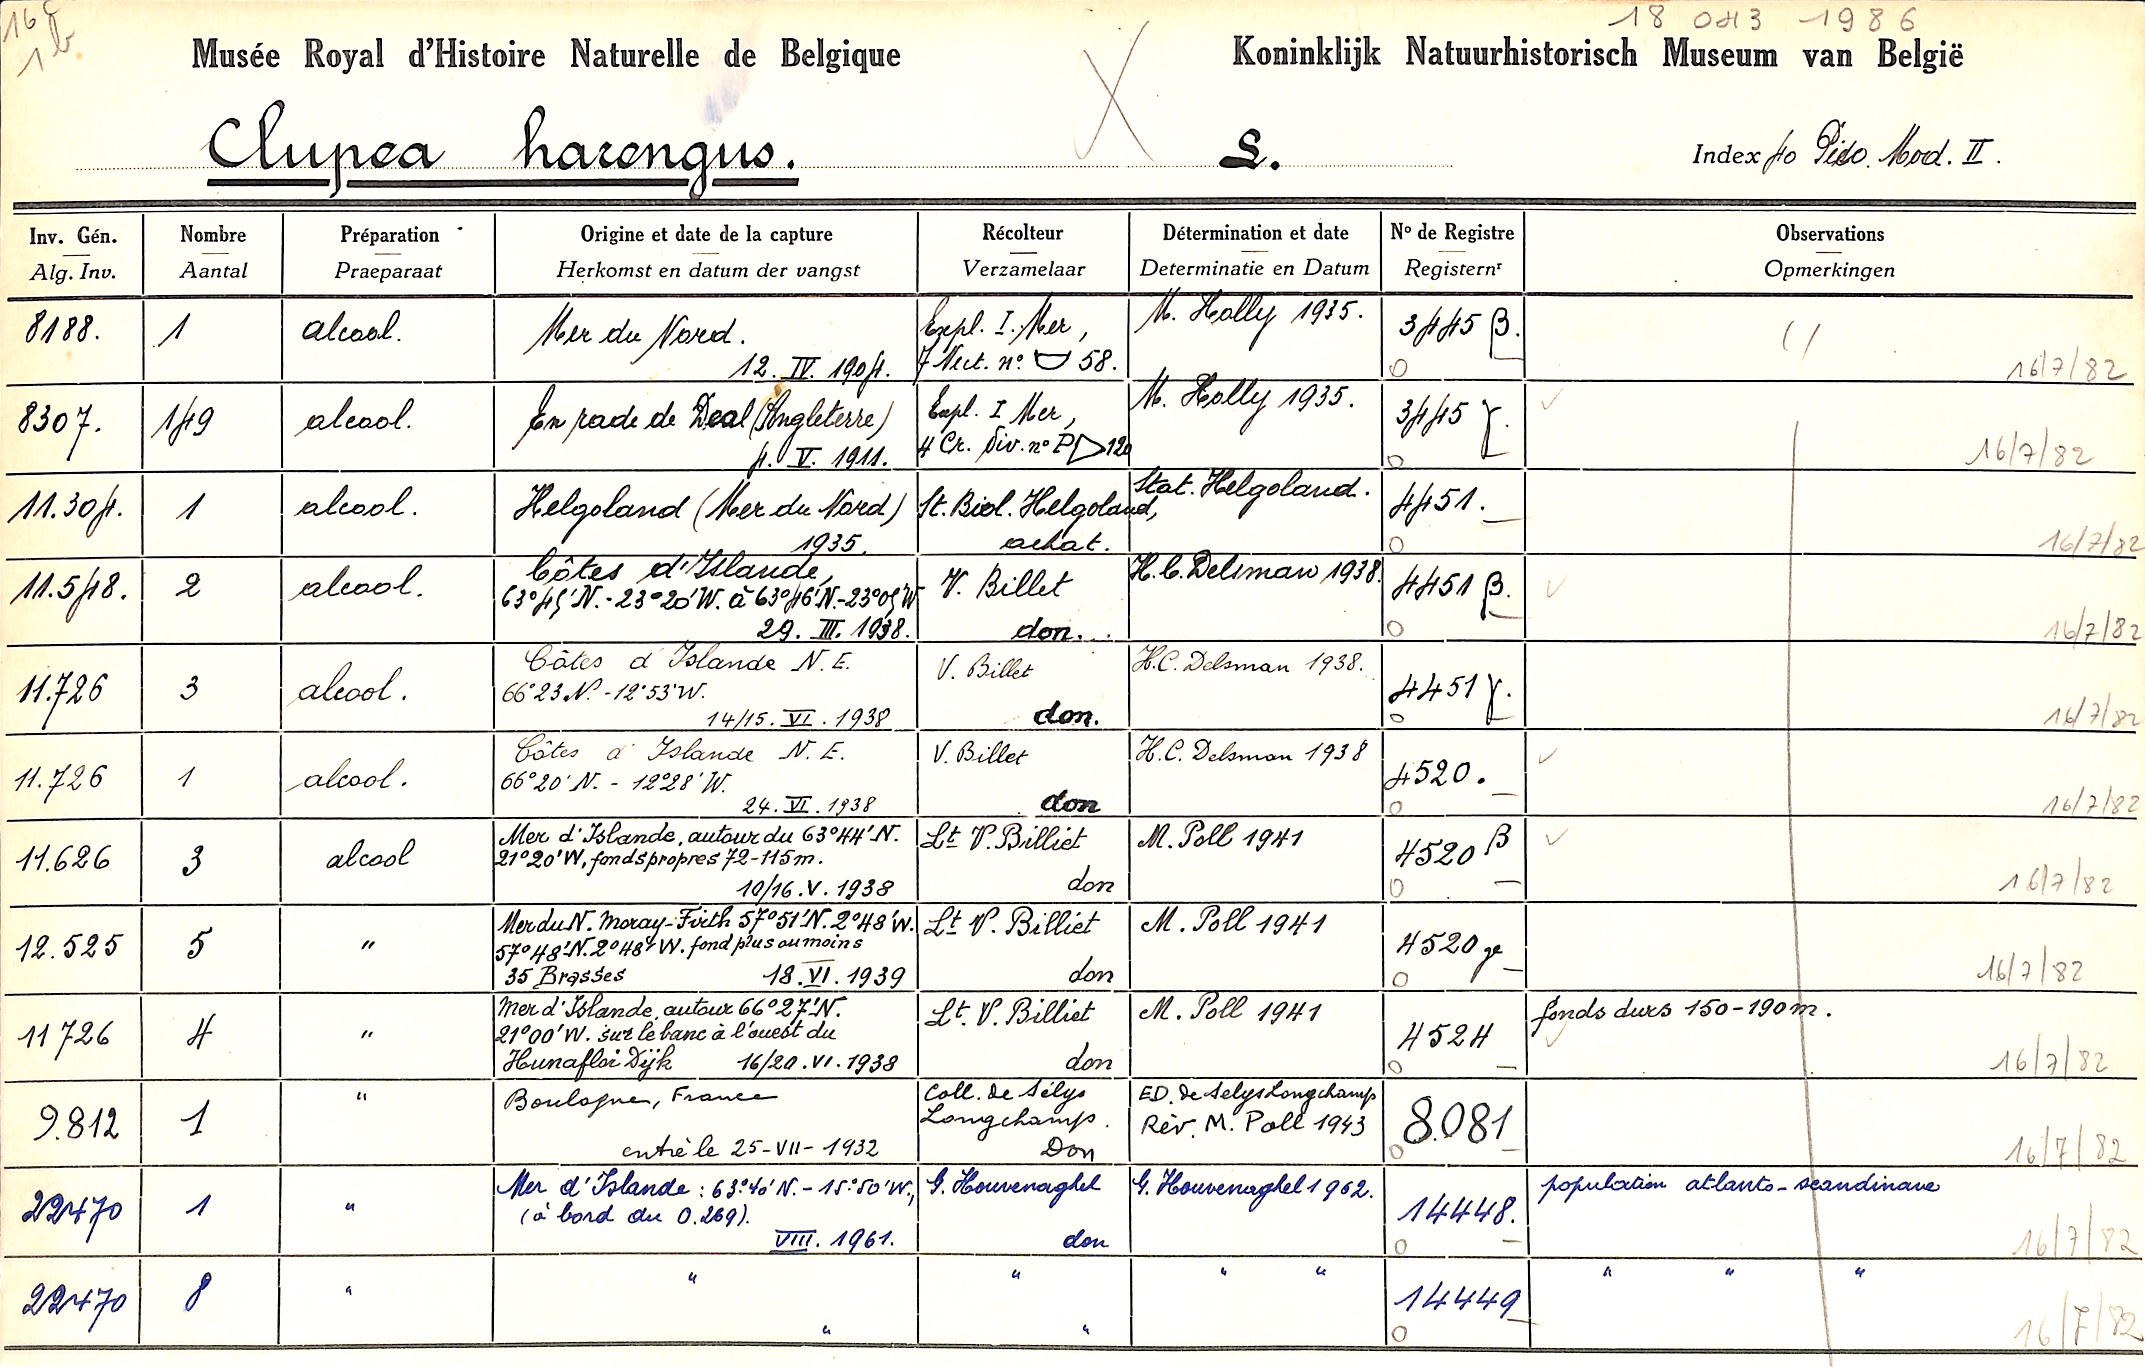 16c
1b
18 1986
Musée Royal d'Histoire Naturelle de Belgique
Koninklijk Natuurhistorisch Museum van België
Clupea harengus. L. Index fo Pisc. Mod. II.
Inv. Gén. Nombre Préparation Origine et date de la capture Récolteur Détermination et date No de Registre Observations
Alg. Inv. Aantal Praeparaat Herkomst en datum der vangst Verzamelaar Determinatie en Datum Registernr Opmerkingen
8188. 1 alcool. Mer du Nord. Expl. I. Mer, M. Holly 1935. 3445 β.
12. IV. 1904. 7 Nect. no. 58. 16/7/82
8307. 149 alcool. En rade de Deal (Angleterre) Expl. I Mer, M. Holly 1935. 3445 γ.
4. V. 1911. 4 Cr. Div. no P 120 16/7/82
11.304. 1 alcool. Helgoland (Mer du Nord) St. Biol. Helgoland, Stat. Helgoland. 4451.
1935. achat. 16/7/82
11.548. 2 alcool. Côtes d'Islande, V. Billet H.C. Delsman 1938. 4451 β.
63°45'N.-23°20'W. à 63°46'N.-23°05'W
29. III. 1938. don. 16/7/82
11.726 3 alcool. Côtes d'Islande N.E. V. Billet H.C. Delsman 1938. 4451 γ.
66°23 N. - 12°53'W.
14/15. VI. 1938 don. 16/7/82
11.726 1 alcool. Côtes d'Islande N.E. V. Billet H.C. Delsman 1938 4520.
66°20' N. - 12°28' W.
24. VI. 1938 don 16/7/82
11.626 3 alcool Mer d'Islande, autour du 63°44'N. Lt V. Billiet M. Poll 1941 4520 β
21°20'W, fonds propres 72-115m.
10/16. V. 1938 don 16/7/82
12.525 5 " Mer du N. Moray-Firth 57°51'N. 2°48'W. Lt V. Billiet M. Poll 1941 4520
57°48'N. 2°48'W. fond plus ou moins
35 Brasses 18. VI. 1939 don 16/7/82
11 726 4 " Mer d'Islande, autour 66°27'N. Lt. V. Billiet M. Poll 1941 4524 fonds durs 150-190m.
21°00'W. sur le banc à l'ouest du
Hunafloi Dijk 16/20. VI. 1938 don 16/7/82
9.812 1 " Boulogne, France Coll. de Sélys ED. de Selys Longchamp 8.081
Longchamp. Rév. M. Poll 1943
entré le 25-VII-1932 Don 16/7/82
22470 1 " Mer d'Islande: 63°40'N. - 15°50'W., G. Houvenaghel G. Houvenaghel 1962. 14448. population atlanto-scandinave
(à bord du O.269).
VIII. 1961. don 16/7/82
22470 8 " " " " " 14449 " " "
" " 16/7/82